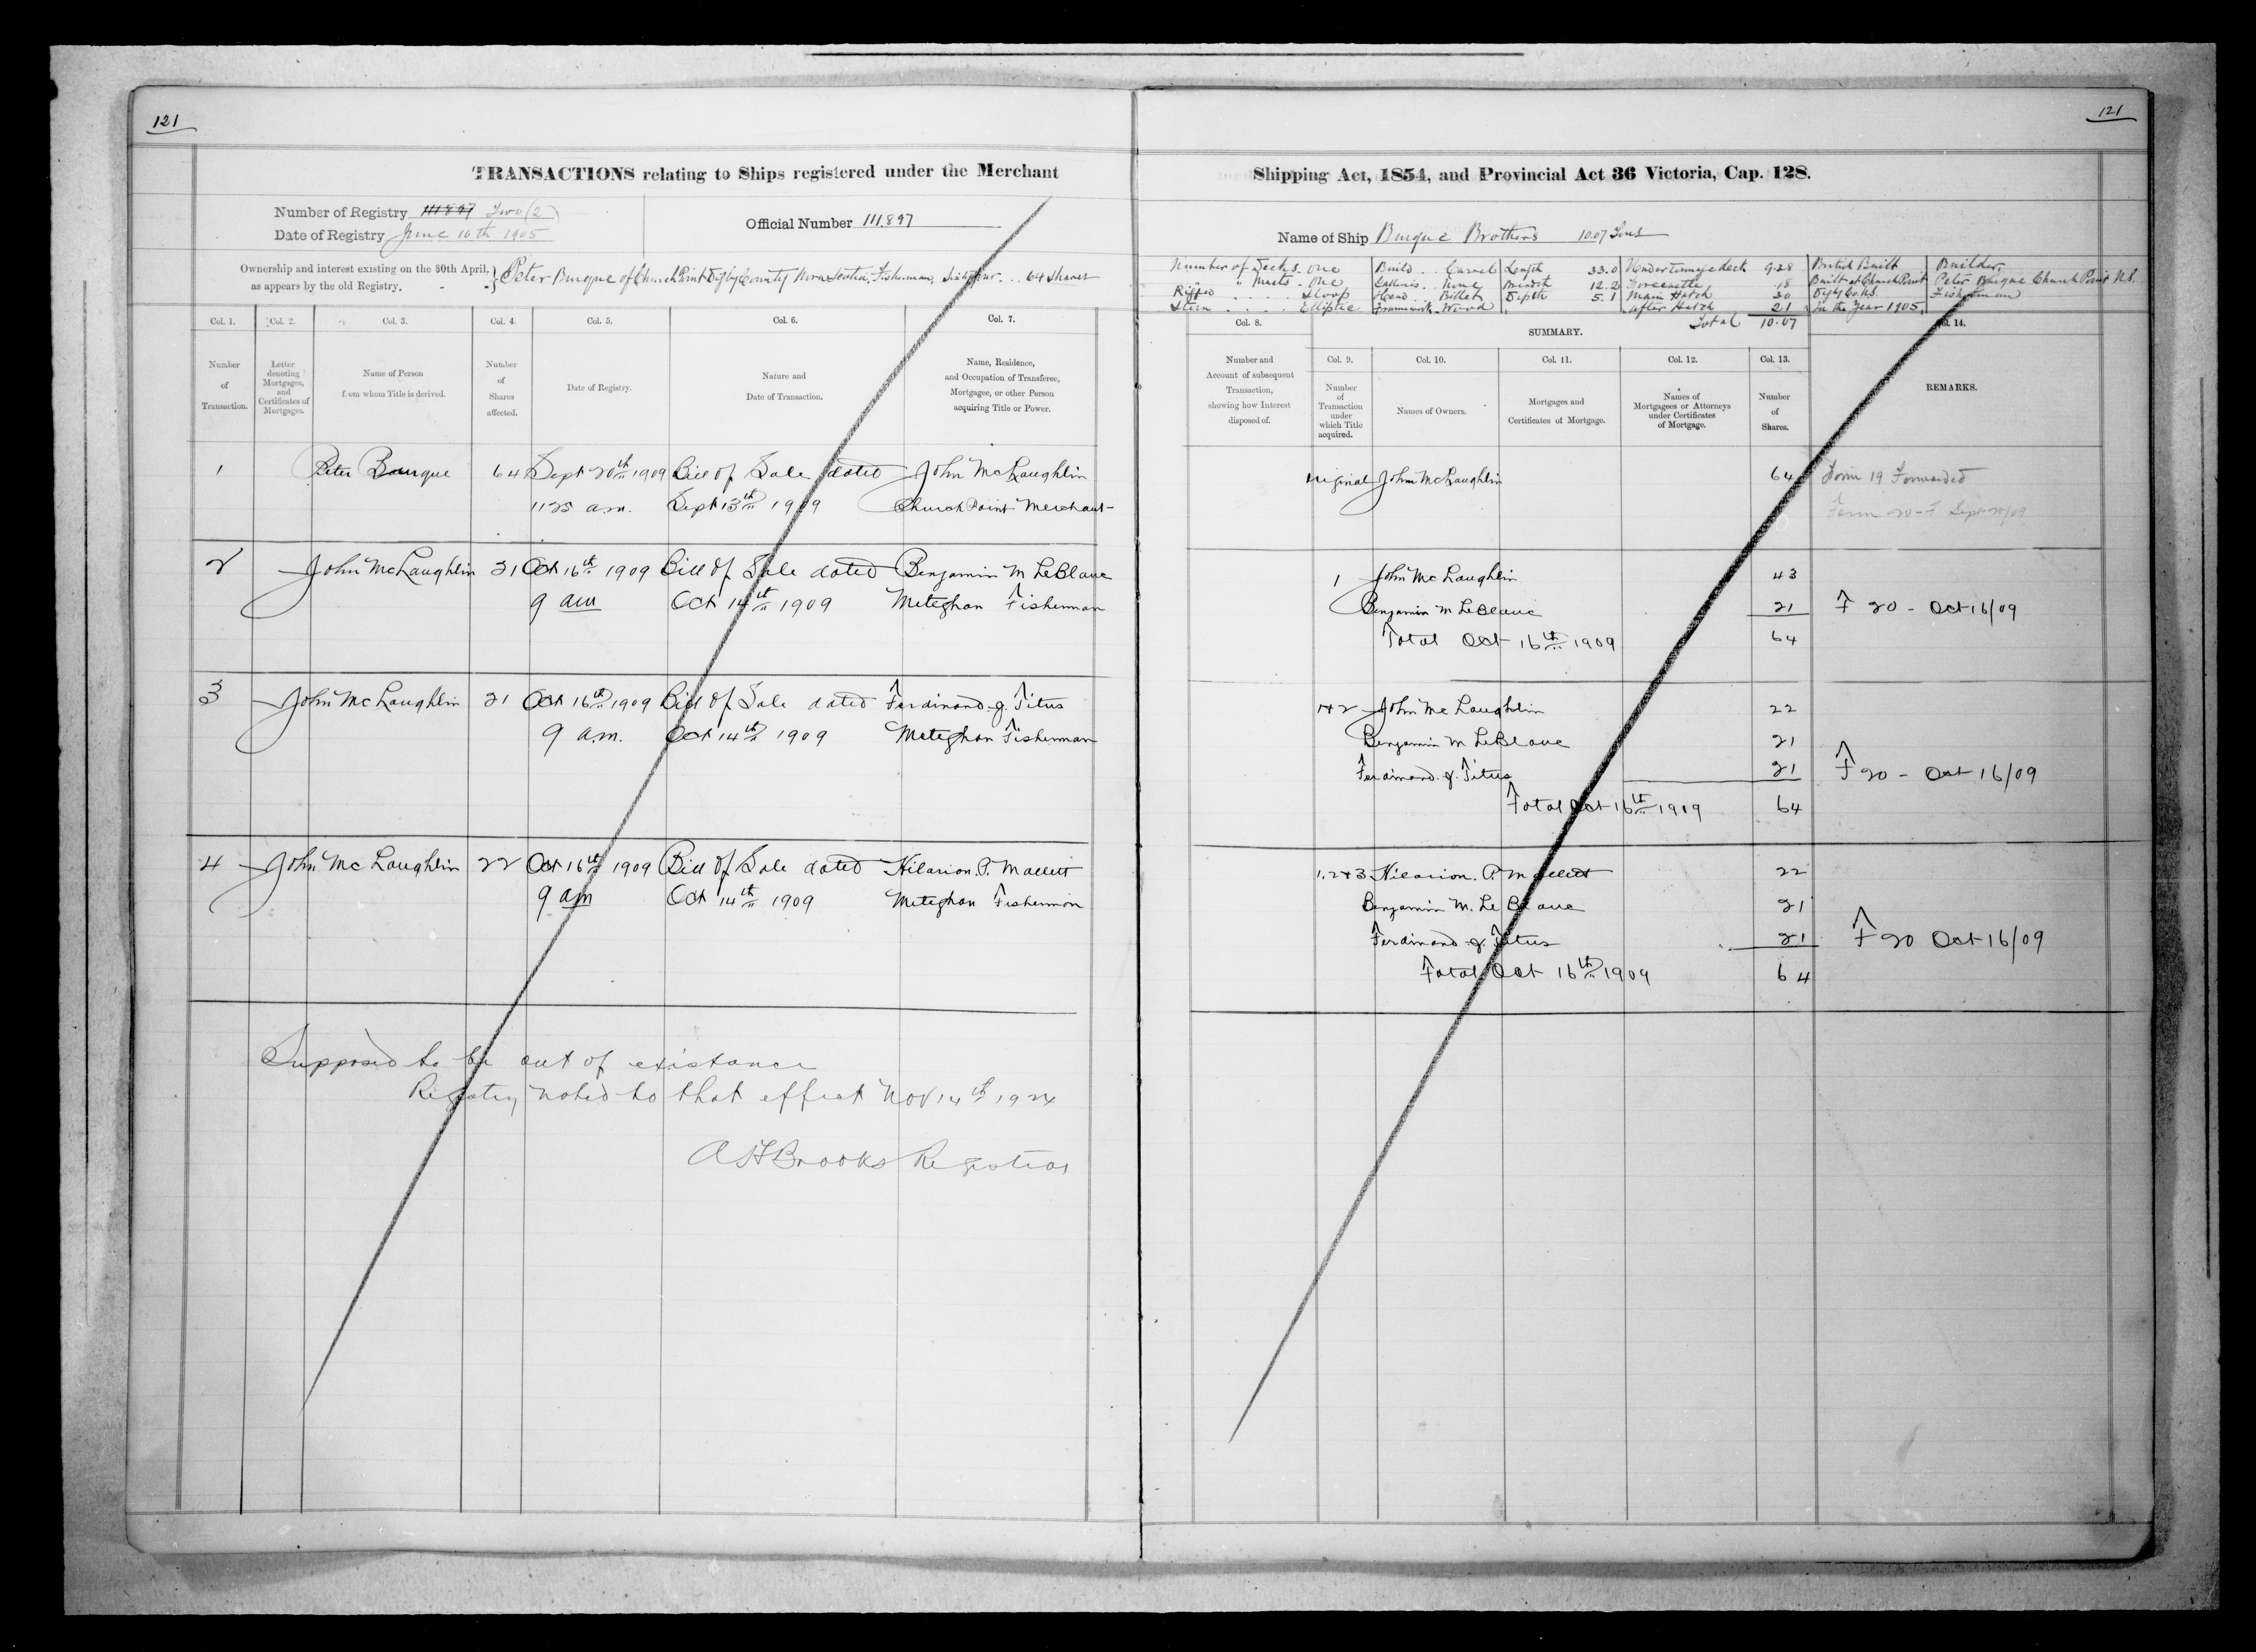 121
TRANSACTIONS relating to Ships registered under the Merchant
Number of Registry 111897 Two (2)
Date of Registry June 16th 1905
Official Number 111,897
Ownership and interest existing on the 30th April,
as appears by the old Registry. - -
Peter Burque of Church Point Digby County Nova Scotia, Fisherman, ... 64 shares
Col. 1. Col. 2. Col. 3. Col. 4. Col. 5. Col. 6. Col. 7.
Number of Transaction.
Letter denoting Mortgages, and Certificates of Mortgages.
Name of Person from whom Title is derived.
Number of Shares affected.
Date of Registry.
Nature and Date of Transaction.
Name, Residence, and Occupation of Transferee, Mortgagee, or other Person acquiring Title or Power.
1 Peter Bourque 64 Sept 20th 1909 Bill of Sale dated John McLaughlin
1125 a.m. Sept 13th 1909 Church Point Merchant
2 John McLaughlin 21 Oct 16th 1909 Bill of Sale dated Benjamin M LeBlanc
9 am Oct 14th 1909 Meteghan Fisherman
3 John McLaughlin 21 Oct 16th 1909 Bill of Sale dated Ferdinand J. Titus
9 a.m. Oct 14th 1909 Meteghan Fisherman
4 John McLaughlin 22 Oct 16th 1909 Bill of Sale dated Hilarion P. Mallett
9 am Oct 14th 1909 Meteghan Fisherman
Supposed to be out of existance
Registry noted to that effect Nov 14th 1924
A H Brooks Registrar
121
Shipping Act, 1854, and Provincial Act 36 Victoria, Cap. 128.
Name of Ship Burque Brothers 10.07 Tons
Number of Decks - One Build .. Carvel Length 33.0 Under Tonnage deck 9.28 British Built Builder,
" Masts - One Galleries .. None Breadth 12.2 18 Built at Church Point Peter Burque Church Point N.S.
Rigged .... Sloop Head .. Billet Depth 5.1 Main Hatch .30 Digby Co. N.S. Fisherman
Stern .... Elliptic Framework - Wood After Hatch 21 In the Year 1905,
Total 10.07
Col. 8. SUMMARY. Col. 14.
Col. 9. Col. 10. Col. 11. Col. 12. Col. 13.
Number and Account of subsequent Transaction, showing how Interest disposed of.
Number of Transaction under which Title acquired.
Names of Owners.
Mortgages and Certificates of Mortgage.
Names of Mortgagees or Attorneys under Certificates of Mortgage.
Number of Shares.
REMARKS.
Original John McLaughlin 64 Form 19 Forwarded
Form 20 - F Sept 20/09
1 John McLaughlin 43
Benjamin M LeBlanc 21 F 20 - Oct 16/09
Total Oct 16th 1909 64
1+2 John McLaughlin 22
Benjamin M LeBlanc 21
Ferdinand J. Titus 21 F 20 - Oct 16/09
Total Oct 16th 1909 64
1.2+3 Hilarion. P. Mallett 22
Benjamin M. LeBlanc 21
Ferdinand J. Titus 21 F 20 Oct 16/09
Total Oct 16th 1909 64